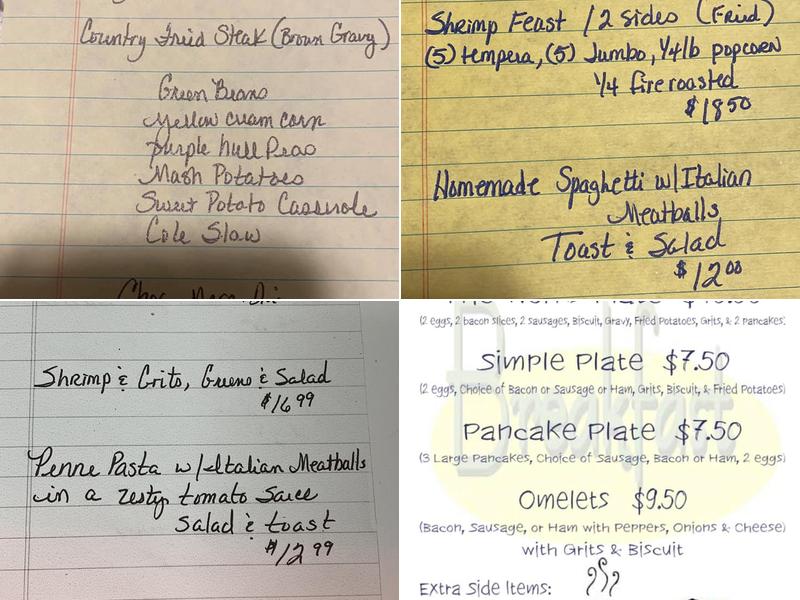 Country Fried Steak (Brown Gravy)
Green Beans
Yellow cream corn
purple hull Peas
Mash Potatoes
Sweet Potato Casserole
Cole Slaw
Shrimp Feast / 2 sides (Fried)
(5) tempera, (5) Jumbo, 1/4 lb popcorn
1/4 fire roasted
$18.50
Homemade Spaghetti w/Italian
Meatballs
Toast & Salad
$12.00
Shrimp & Grits, Greens & Salad
$16.99
Penne Pasta w/Italian Meatballs
in a zesty tomato Sauce
Salad & toast
$12.99
Plate
(2 eggs, 2 bacon slices, 2 sausages, Biscuit, Gravy, Fried Potatoes, Grits, & 2 pancakes)
Simple Plate $7.50
(2 eggs, Choice of Bacon or Sausage or Ham, Grits, Biscuit, & Fried Potatoes)
Breakfast
Pancake Plate $7.50
(3 Large Pancakes, Choice of Sausage, Bacon or Ham, 2 eggs)
Omelets $9.50
(Bacon, Sausage, or Ham with Peppers, Onions & Cheese)
with Grits & Biscuit
Extra Side Items: